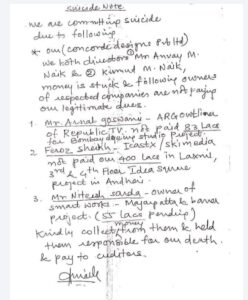 Suicide Note
We are committing suicide
due to following
* our (concorde designs Pvt ltd)
we both directors ① Mr Anvay M.
Naik & ② Kumud M. Naik,
money is stuck & following owners
of respected companies are not paying
our legitimate dues.
1. Mr Arnab goswami - ARG Outlier
of Republic TV. not paid 83 lacs
for Bombay dyeing studio project.
2. Feroz Sheikh - Icastx / Skimedia
not paid our 400 lacs in Laxmi,
3rd & 4th Floor Idea Square
project in Andheri.
3. Mr Nitesh sarda - owner of
smart works - Magarpatta & baner
project. (55 lacs pending)
Kindly collect money from them & held
them responsible for our death.
& pay to creditors.